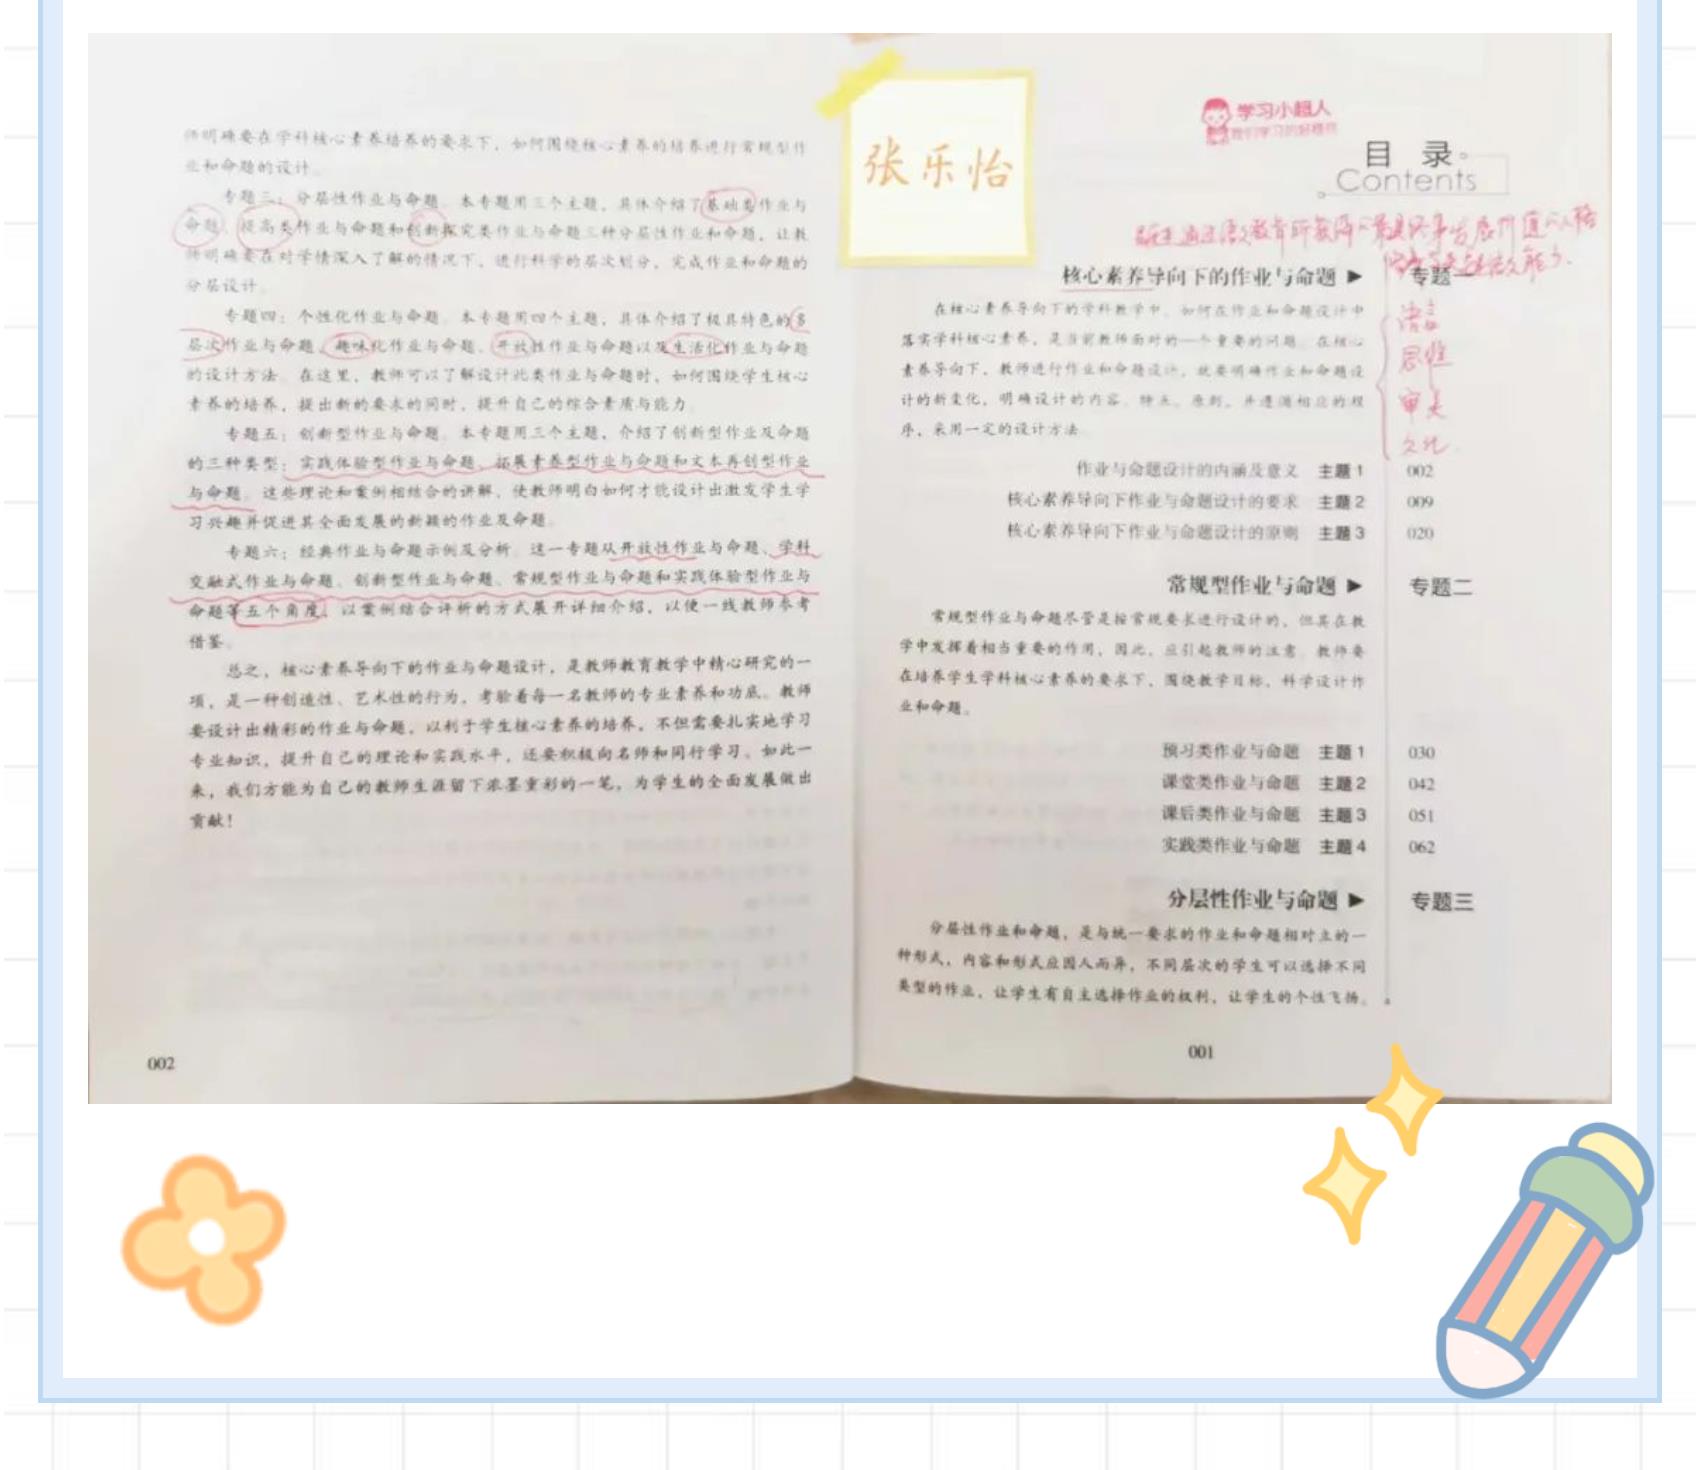 师明确要在学科核心素养培养的要求下，如何围绕核心素养的培养进行常规型作
业和命题的设计。
专题三：分层性作业与命题。本专题用三个主题，具体介绍了基础类作业与
命题、提高类作业与命题和创新探究类作业与命题三种分层性作业和命题，让教
师明确要在对学情深入了解的情况下，进行科学的层次划分，完成作业和命题的
分层设计。
专题四：个性化作业与命题。本专题用四个主题，具体介绍了极具特色的多
层次作业与命题、趣味化作业与命题、开放性作业与命题以及生活化作业与命题
的设计方法。在这里，教师可以了解设计此类作业与命题时，如何围绕学生核心
素养的培养，提出新的要求的同时，提升自己的综合素质与能力。
专题五：创新型作业与命题。本专题用三个主题，介绍了创新型作业及命题
的三种类型：实践体验型作业与命题、拓展素养型作业与命题和文本再创型作业
与命题。这些理论和案例相结合的讲解，使教师明白如何才能设计出激发学生学
习兴趣并促进其全面发展的新颖的作业及命题。
专题六：经典作业与命题示例及分析。这一专题从开放性作业与命题、学科
交融式作业与命题、创新型作业与命题、常规型作业与命题和实践体验型作业与
命题等五个角度，以案例结合评析的方式展开详细介绍，以便一线教师参考
借鉴。
总之，核心素养导向下的作业与命题设计，是教师教育教学中精心研究的一
项，是一种创造性、艺术性的行为，考验着每一名教师的专业素养和功底。教师
要设计出精彩的作业与命题，以利于学生核心素养的培养，不但需要扎实地学习
专业知识，提升自己的理论和实践水平，还要积极向名师和同行学习。如此一
来，我们方能为自己的教师生涯留下浓墨重彩的一笔，为学生的全面发展做出
贡献！
002
张乐怡
学习小超人
我们学习的好榜样
目 录
Contents
核心素养导向下的作业与命题 ▶ 专题一
语言
思维
审美
文化
在核心素养导向下的学科教学中，如何在作业和命题设计中
落实学科核心素养，是当前教师面对的一个重要的问题。在核心
素养导向下，教师进行作业和命题设计，就要明确作业和命题设
计的新变化，明确设计的内容、特点、原则，并遵循相应的程
序，采用一定的设计方法。
作业与命题设计的内涵及意义 主题1 002
核心素养导向下作业与命题设计的要求 主题2 009
核心素养导向下作业与命题设计的原则 主题3 020
常规型作业与命题 ▶ 专题二
常规型作业与命题尽管是按常规要求进行设计的，但其在教
学中发挥着相当重要的作用，因此，应引起教师的注意。教师要
在培养学生学科核心素养的要求下，围绕教学目标，科学设计作
业和命题。
预习类作业与命题 主题1 030
课堂类作业与命题 主题2 042
课后类作业与命题 主题3 051
实践类作业与命题 主题4 062
分层性作业与命题 ▶ 专题三
分层性作业和命题，是与统一要求的作业和命题相对立的一
种形式，内容和形式应因人而异，不同层次的学生可以选择不同
类型的作业，让学生有自主选择作业的权利，让学生的个性飞扬。
001